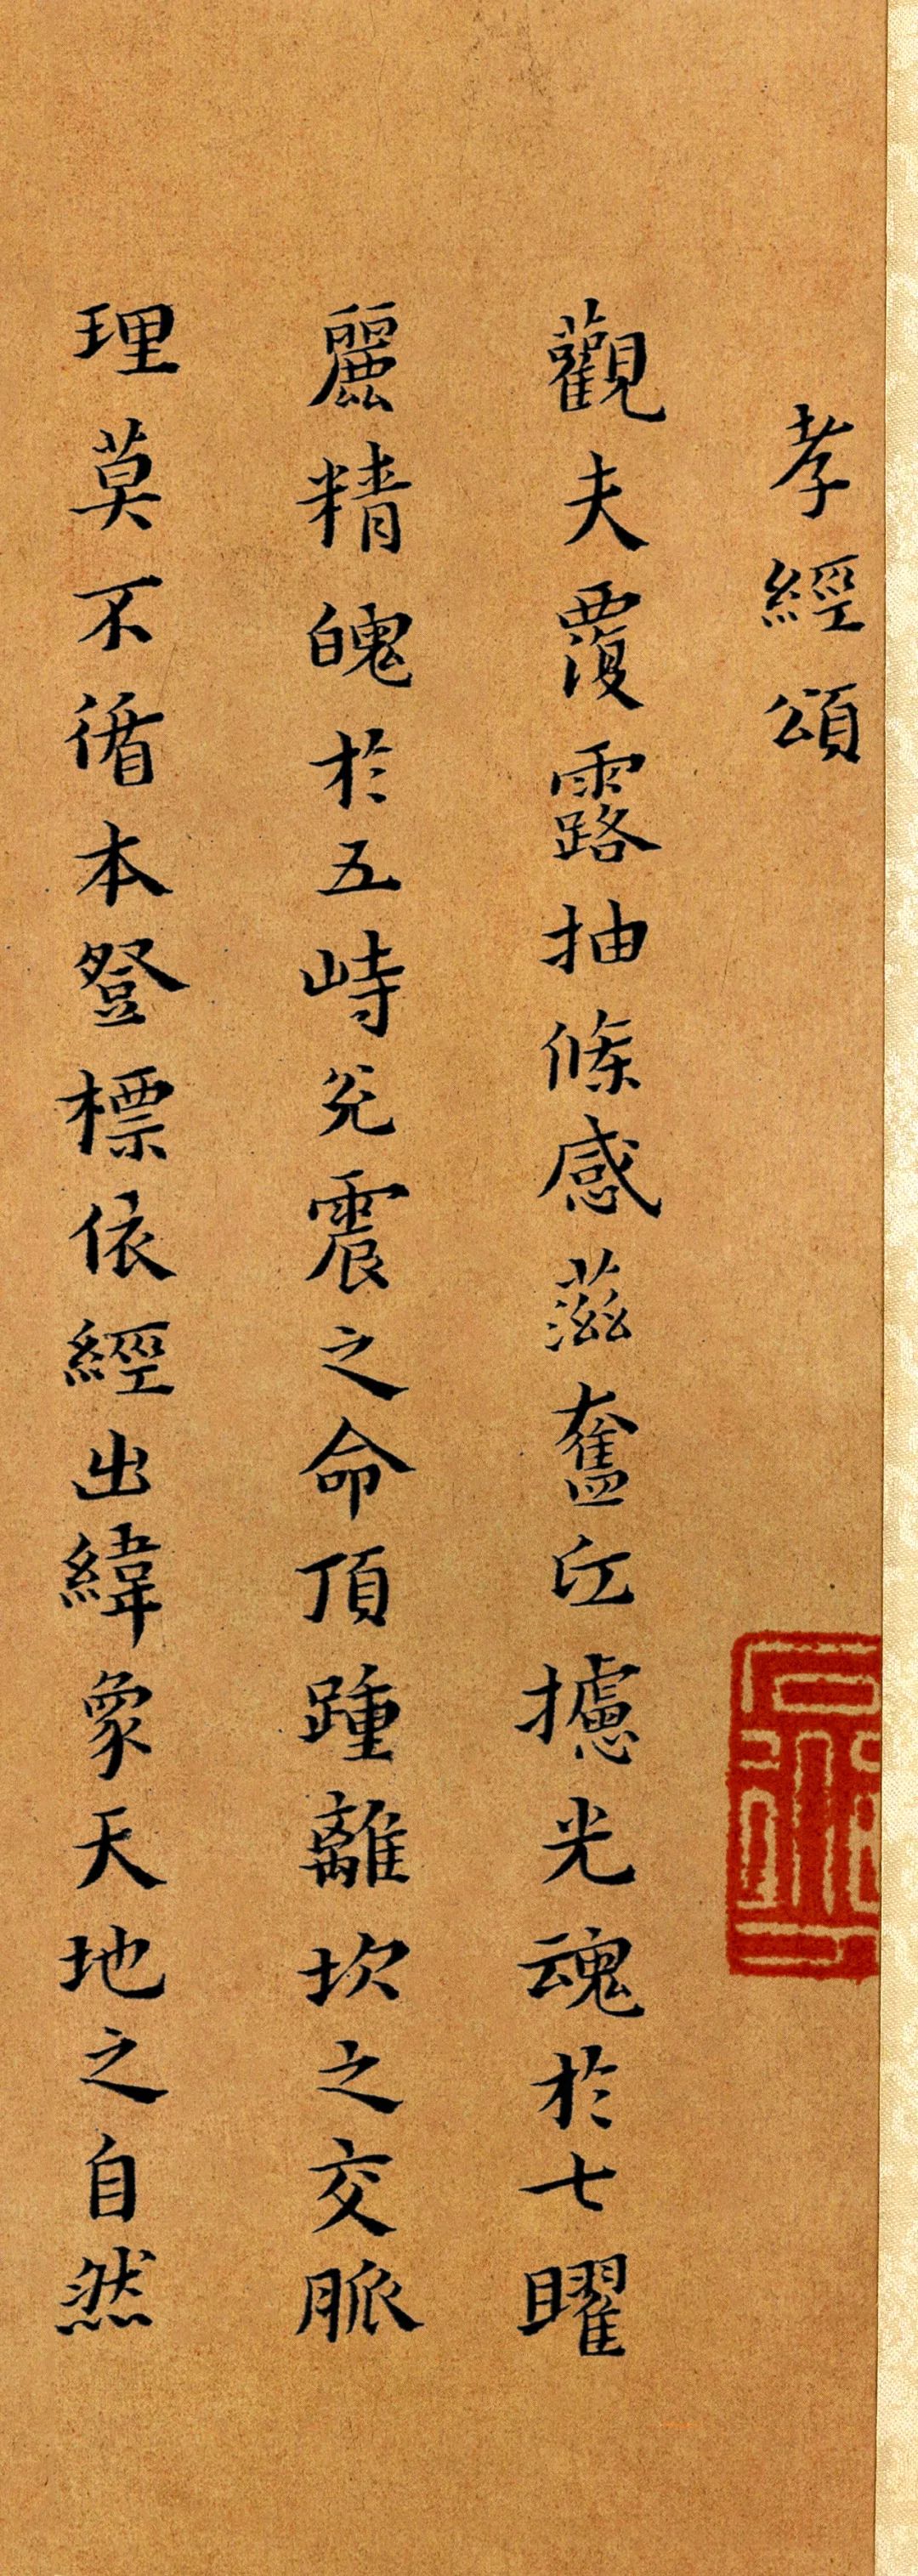 孝經頌
觀夫覆露抽條感蒞奮仁攄光魂於七曜
麗精魄於五峙兊震之命頂踵離坎之交脈
理莫不循本發標依經出緯象天地之自然